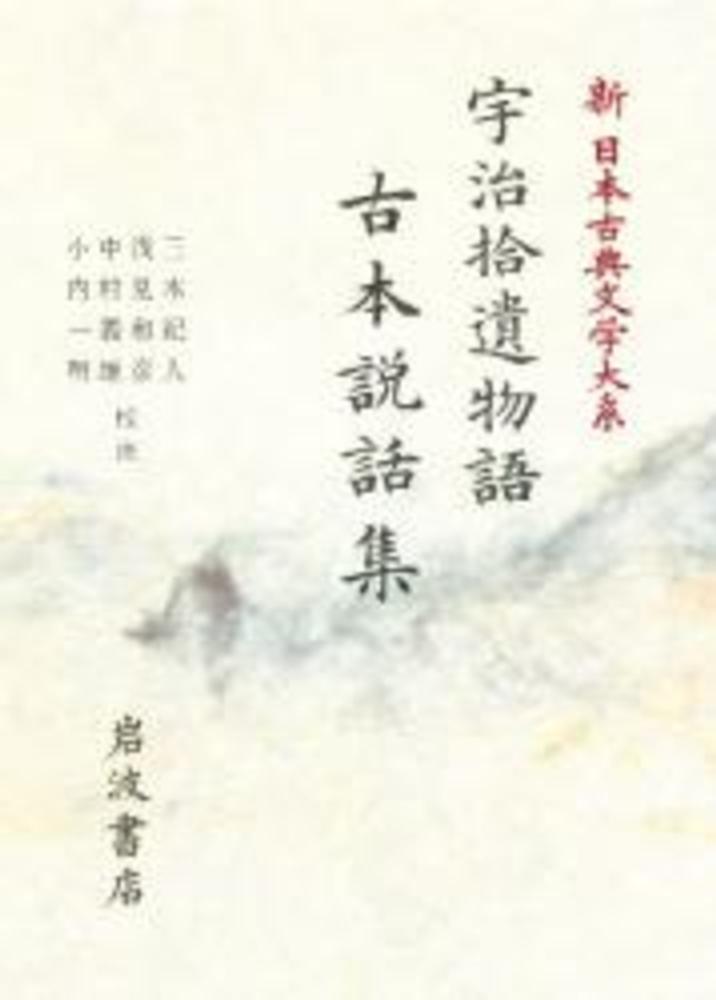 新 日本古典文学大系
宇治拾遺物語
古本説話集
三木紀人
浅見和彦
中村義雄
小内一明
校注
岩波書店